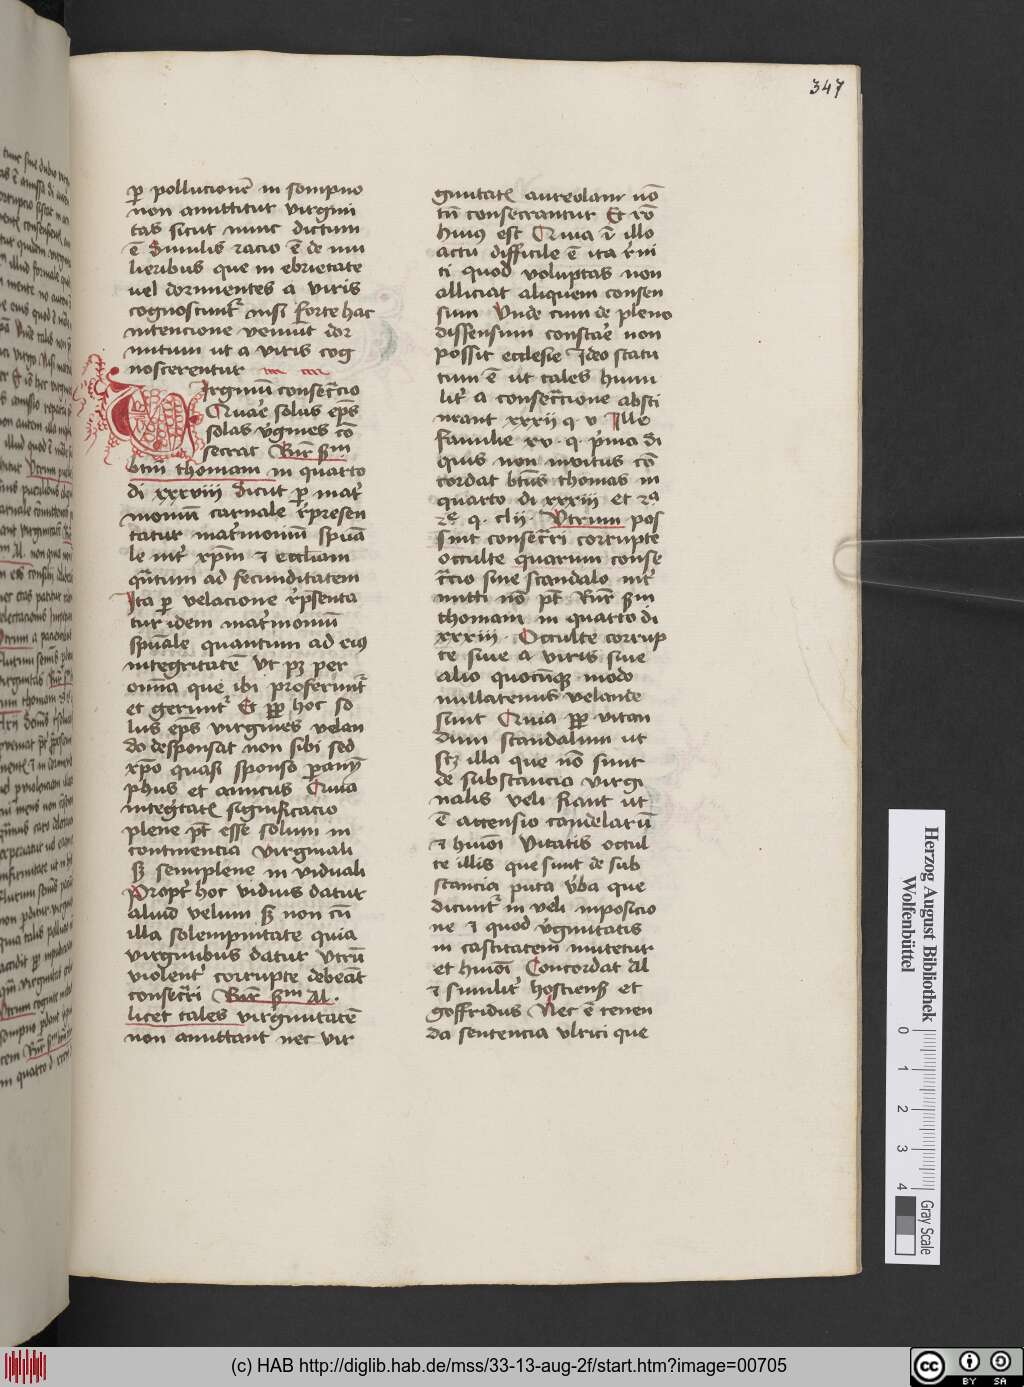 347
ꝑ pollucionē in sompno
non amittitur virgini
tas sicut nunc dictum
ē Similis racio ē de mu
lieribus que in ebrietate
uel dormientes a viris
cognoscuntr̃ nisi forte hac
intencione veniūt dor
mitum ut a viris cog
noscerentur
Virginū consecr̃cio
Quare solus ep̄s
solas v̓gines cō
secrat Rn̄r ẜm
btm̄ thomam in quarto
di xxxviii dicut ꝑ mat̓
moniū carnale r̓presen
tatur mat̓moniū spūa
le int̓ xp̄m ⁊ eccl̄iam
qn̄tum ad fecunditatem
Ita ꝑ velacione r̓p̄senta
tur idem mat̓moniū
spūale quantum ad eiꝰ
integritatē Ut pꝫ per
om̄ia que ibi proferuntr̃
et geruntr̃ Et ꝓꝑ hoc so
lus ep̄s virgines velan
do desponsat non sibi sed
xp̄o quasi sponso
phus et amicus Quia
integ̓tatꝭ significacio
plene pt̄ esse solum in
continencia virginali
ẜ semiplene in viduali
Propt̓ hoc viduis datur
aliud velum ẜ non cū
illa solempnitate quia
virginibus datur Utrū
violent̓ corrupte debeāt
consecr̃ri Rn̄r ẜm Al.
licet tales virginitatē
non amittant nec vir
ginitatꝭ aureolam nō
tn̄ consecrantur Et rō
huiꝰ est Quia ī illo
actu difficile ē ita r̓ni
ti quod voluptas non
alliciat aliquem consen
sum Unde cum de pleno
dissensum constar̓e non
possit ecclesie Ideo statu
tum ē ut tales humi
lit̓ a consecr̃cione absti
neant xxxii q. v Ille
familie xv. q. p̓ma di
quis non invitus cō
cordat btūs thomas in
quarto di xxxiii et
q. clii. Utrum pos
sint consecr̃ri corrupte
occulte quarum conse
cr̃cio sine scandalo int̓
mitti nō pt̄ Rn̄r ẜm
thomam in quarto di
xxxiii. Occulte corrup
te siue a viris siue
alio quocūqꝫ modo
nullatenus velande
sunt Quia ꝓꝑ vitan
dum scandalum ut
scꝫ illa que nō sunt
de substancia virgi
nalis veli fiant ut
ē accensio candelarū
⁊ huiōi Vitatis occul
te illis que sunt de sub
stancia puta v̓ba que
dicuntr̃ in veli inposicio
ne ⁊ quod v̓ginitatis
in castitatem mutetur
et huiōi Concordat Al
⁊ similit̓ hostienẜ et
goffridus Nec ē tenen
da sentencia vlrici que
Herzog August Bibliothek
Wolfenbüttel
0 1 2 3 4
Gray Scale
(c) HAB http://diglib.hab.de/mss/33-13-aug-2f/start.htm?image=00705
cc BY SA